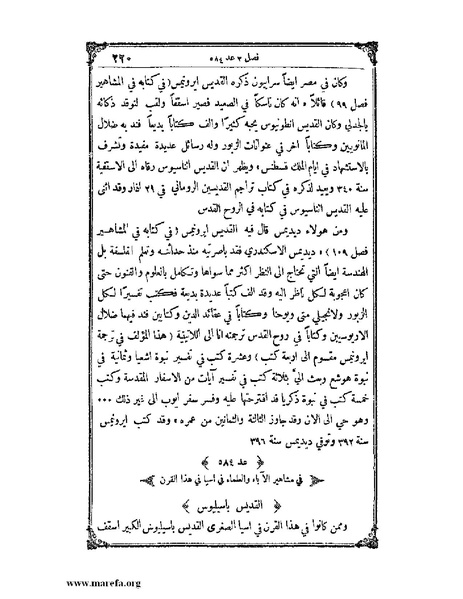 فصل ٣ عد ٥٨٤ ٢٦٠
وكان في مصر ايضاً سرابيون ذكره القديس ايرونيمس (في كتابه في المشاهير
فصل ٩٩) قائلاً « انه كان ناسكاً في الصعيد فصير اسقفاً ولقب لتوقد ذكائه
بالجدلي وكان القديس انطونيوس يحبه كثيرًا والف كتاباً بديعاً فند به ضلال
المانويين وكتاباً آخر في عنوانات الزبور وله رسائل عديدة مفيدة وتشرف
بالاستشهاد في ايام الملك قسطنس » ويظهر ان القديس اتناسيوس رقاه الى الاسقفية
سنة ٣٤٠ ويعيد لذكره في كتاب تراجم القديسين الروماني في ٢١ اذار وقد اثنى
عليه القديس اتناسيوس في كتابه في الروح القدس
ومن هولاء ديديمس قال فيه القديس ايرونيمس (في كتابه في المشاهير
فصل ١٠٩) « ديديمس الاسكندري فقد باصرتيه منذ حداثته وتعلم الفلسفة بل
الهندسة ايضاً التي تحتاج الى النظر اكثر مما سواها وتكامل بالعلوم والفنون حتى
كان اعجوبة لكل ناظر اليه وقد الف كتباً عديدة بديعة فكتب تفسيرًا لكل
الزبور ولانجيلي متى ويوحنا وكتاباً في عقائد الدين وكتابين فند فيهما ضلال
الاريوسيين وكتاباً في روح القدس ترجمته انا الى اللاتينية (هذا المؤلف في ترجمة
ايرونيمس مقسوم الى اربعة كتب) وعشرة كتب في تفسير نبوة اشعيا وثمانية في
نبوة هوشع وبعث اليَّ بثلاثة كتب في تفسير آيات من الاسفار المقدسة وكتب
خمسة كتب في نبوة ذكريا قد اقترحتها عليه وفسر سفر ايوب الى غير ذلك ٠٠٠
وهو حي الى الان وقد جاوز الثالثة والثمانين من عمره » وقد كتب ايرونيمس
سنة ٣٩٢ وتوفي ديديمس سنة ٣٩٦
﴿ عد ٥٨٤ ﴾
في مشاهير الآباء والعلماء في اسيا في هذا القرن
﴿ القديس باسيليوس ﴾
وممن كانوا في هذا القرن في اسيا الصغرى القديس باسيليوس الكبير اسقف
www.marefa.org